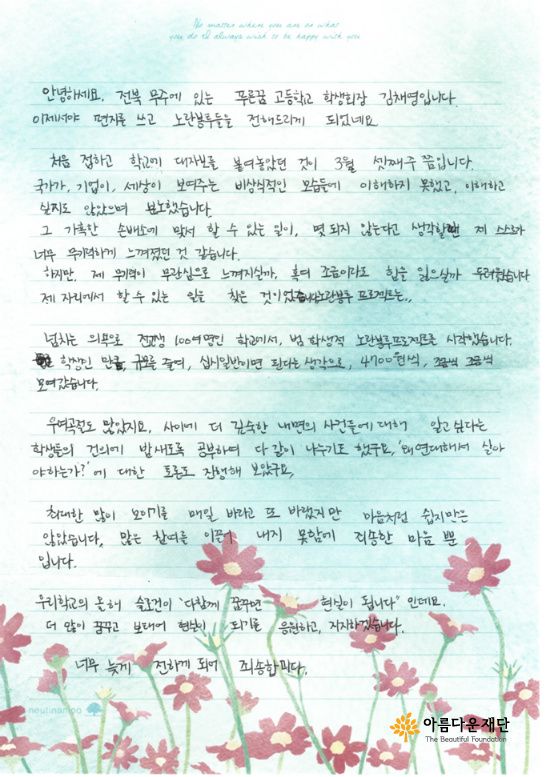 No matter where you are or what
you do I'll always wish to be happy with you
안녕하세요. 전북 무주에 있는 푸른꿈 고등학교 학생회장 김채영입니다.
이제서야 편지를 쓰고 노란봉투들을 전해드리게 되었네요.
처음 접하고 학교에 대자보를 붙여놓았던 것이 3월 셋째주 쯤입니다.
국가가, 기업이, 세상이 보여주는 비상식적인 모습들에 이해하지 못했고, 이해하고
싶지도 않았으며 분노했습니다.
그 가혹한 손배소에 맞서 할 수 있는 일이, 몇 되지 않는다고 생각할때 제 스스로가
너무 무기력하게 느껴졌던 것 같습니다.
하지만, 제 무기력이 무관심으로 느껴지실까, 혹여 조금이라도 힘을 잃으실까 두려웠습니다
제 자리에서 할 수 있는 일을 찾은 것이었습니다 노란봉투 프로젝트는..
넘치는 의무로 전교생 100여명인 학교에서, 범 학생적 노란봉투프로젝트를 시작했습니다.
학생인 만큼, 규모를 줄여, 십시일반이면 된다는 생각으로, 4700원씩, 조금씩 조금씩
모여갔습니다.
우여곡절도 많았지요, 사이에 더 깊숙한 내면의 사건들에 대해 알고 싶다는
학생들의 건의에 밤새도록 공부하여 다 같이 나누기도 했구요, '왜 연대하며 살아
야하는가?'에 대한 토론도 진행해 보았구요,
최대한 많이 모이기를 매일 바라고 또 바랬지만 마음처럼 쉽지만은
않았습니다, 많은 참여를 이끌어 내지 못함에 죄송한 마음 뿐
입니다.
우리학교의 올해 슬로건이 "다함께 꿈꾸면 현실이 됩니다" 인데요.
더 많이 꿈꾸고 보태어 현실이 되기를 응원하고, 지지하겠습니다.
너무 늦게 전하게 되어 죄송합니다.
neutinamoo
아름다운재단
The Beautiful Foundation